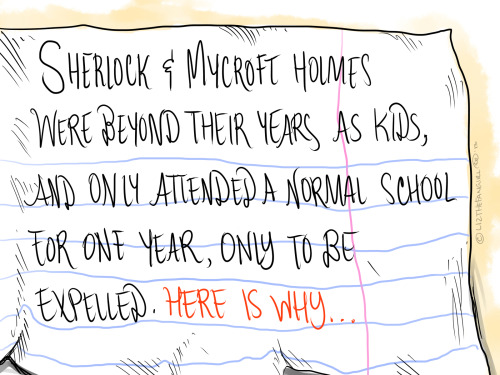 SHERLOCK & MYCROFT HOLMES
WERE BEYOND THEIR YEARS AS KIDS,
AND ONLY ATTENDED A NORMAL SCHOOL
FOR ONE YEAR, ONLY TO BE
EXPELLED. HERE IS WHY...